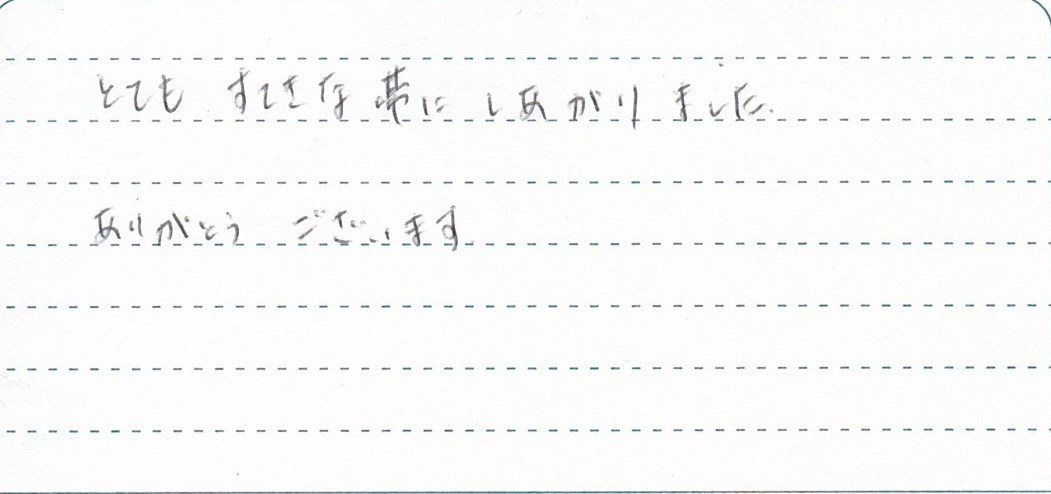 とても すてきな 帯に しあがりました.
ありがとう ございます.